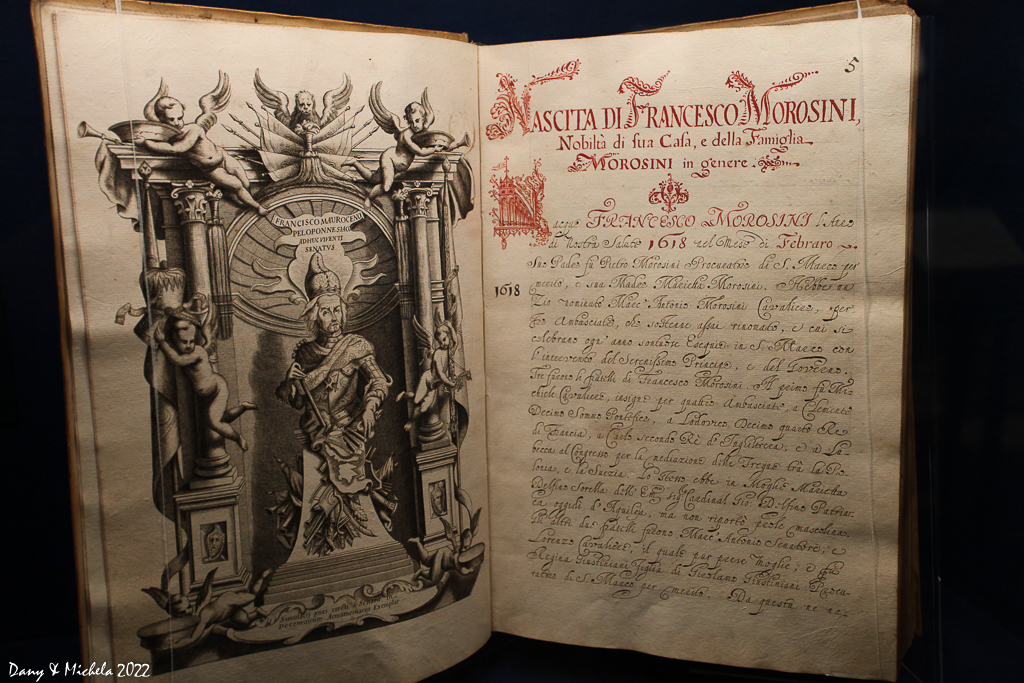 FRANCISCO MAUROCENO
PELOPONNESIACO
ADHUC VIVENTI
SENATVS
Simulacri prius erecti a Senatu in
Decemvirum Armamentario Exemplar
5
NASCITA DI FRANCESCO MOROSINI,
Nobiltà di sua Casa, e della Famiglia
MOROSINI in genere.
Nacque FRANCESCO MOROSINI l'Anno
di Nostra Salute 1618 nel Mese di Febraro
1618
Suo Padre fù Pietro Morosini Procurator di S. Marco per
merito, e sua Madre Maricha Morosini. Hebbe un
Zio nominato Marc' Antonio Morosini Cavalier, per
Ambasciate, che sostenne assai rinomato, e cui si
celebrano ogn' anno sontuose Esequie in S. Marco con
l'intervento del Serenissimo Principe, e del Governo.
Tre furono li fratelli di Francesco Morosini. Il primo fù Mi-
chiel Cavalier, insigne per quattro Ambasciate, a Clemente
Decimo Sommo Pontefice, a Lodovico Decimo quarto Re
di Francia, a Carlo secondo Rè d'Inghilterra, e a Lu-
becca al Congresso per la mediazione delle Tregue trà la Po-
lonia, e la Suezia. Lo stesso ebbe in Moglie Maricha
Delfino Sorella dell' Em. Sig. Cardinal Gio: Delfino Patriar-
ca oggidì d'Aquileia, ma non riportò prole mascolina.
Gli altri due fratelli furono Marc' Antonio Senatore, e
Lorenzo Cavalier, il quale pur prese Moglie, e fù
Regina Giustiniani figlia di Girolamo Giustiniani Procu-
rator di S. Marco per merito. Da questa ne ne-
Dany & Michela 2022